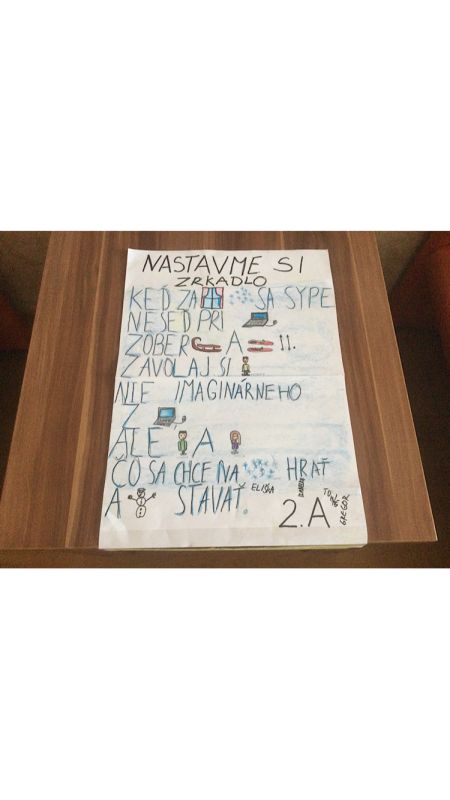 NASTAVME SI
ZRKADLO
KEĎ ZA SA SYPE
NESEĎ PRI
ZOBER A !!.
ZAVOLAJ SI
NIE IMAGINÁRNEHO
Z
ALE A
ČO SA CHCE NA HRAŤ
A STAVAŤ.
ELIŠKA
2.A
GREGOR